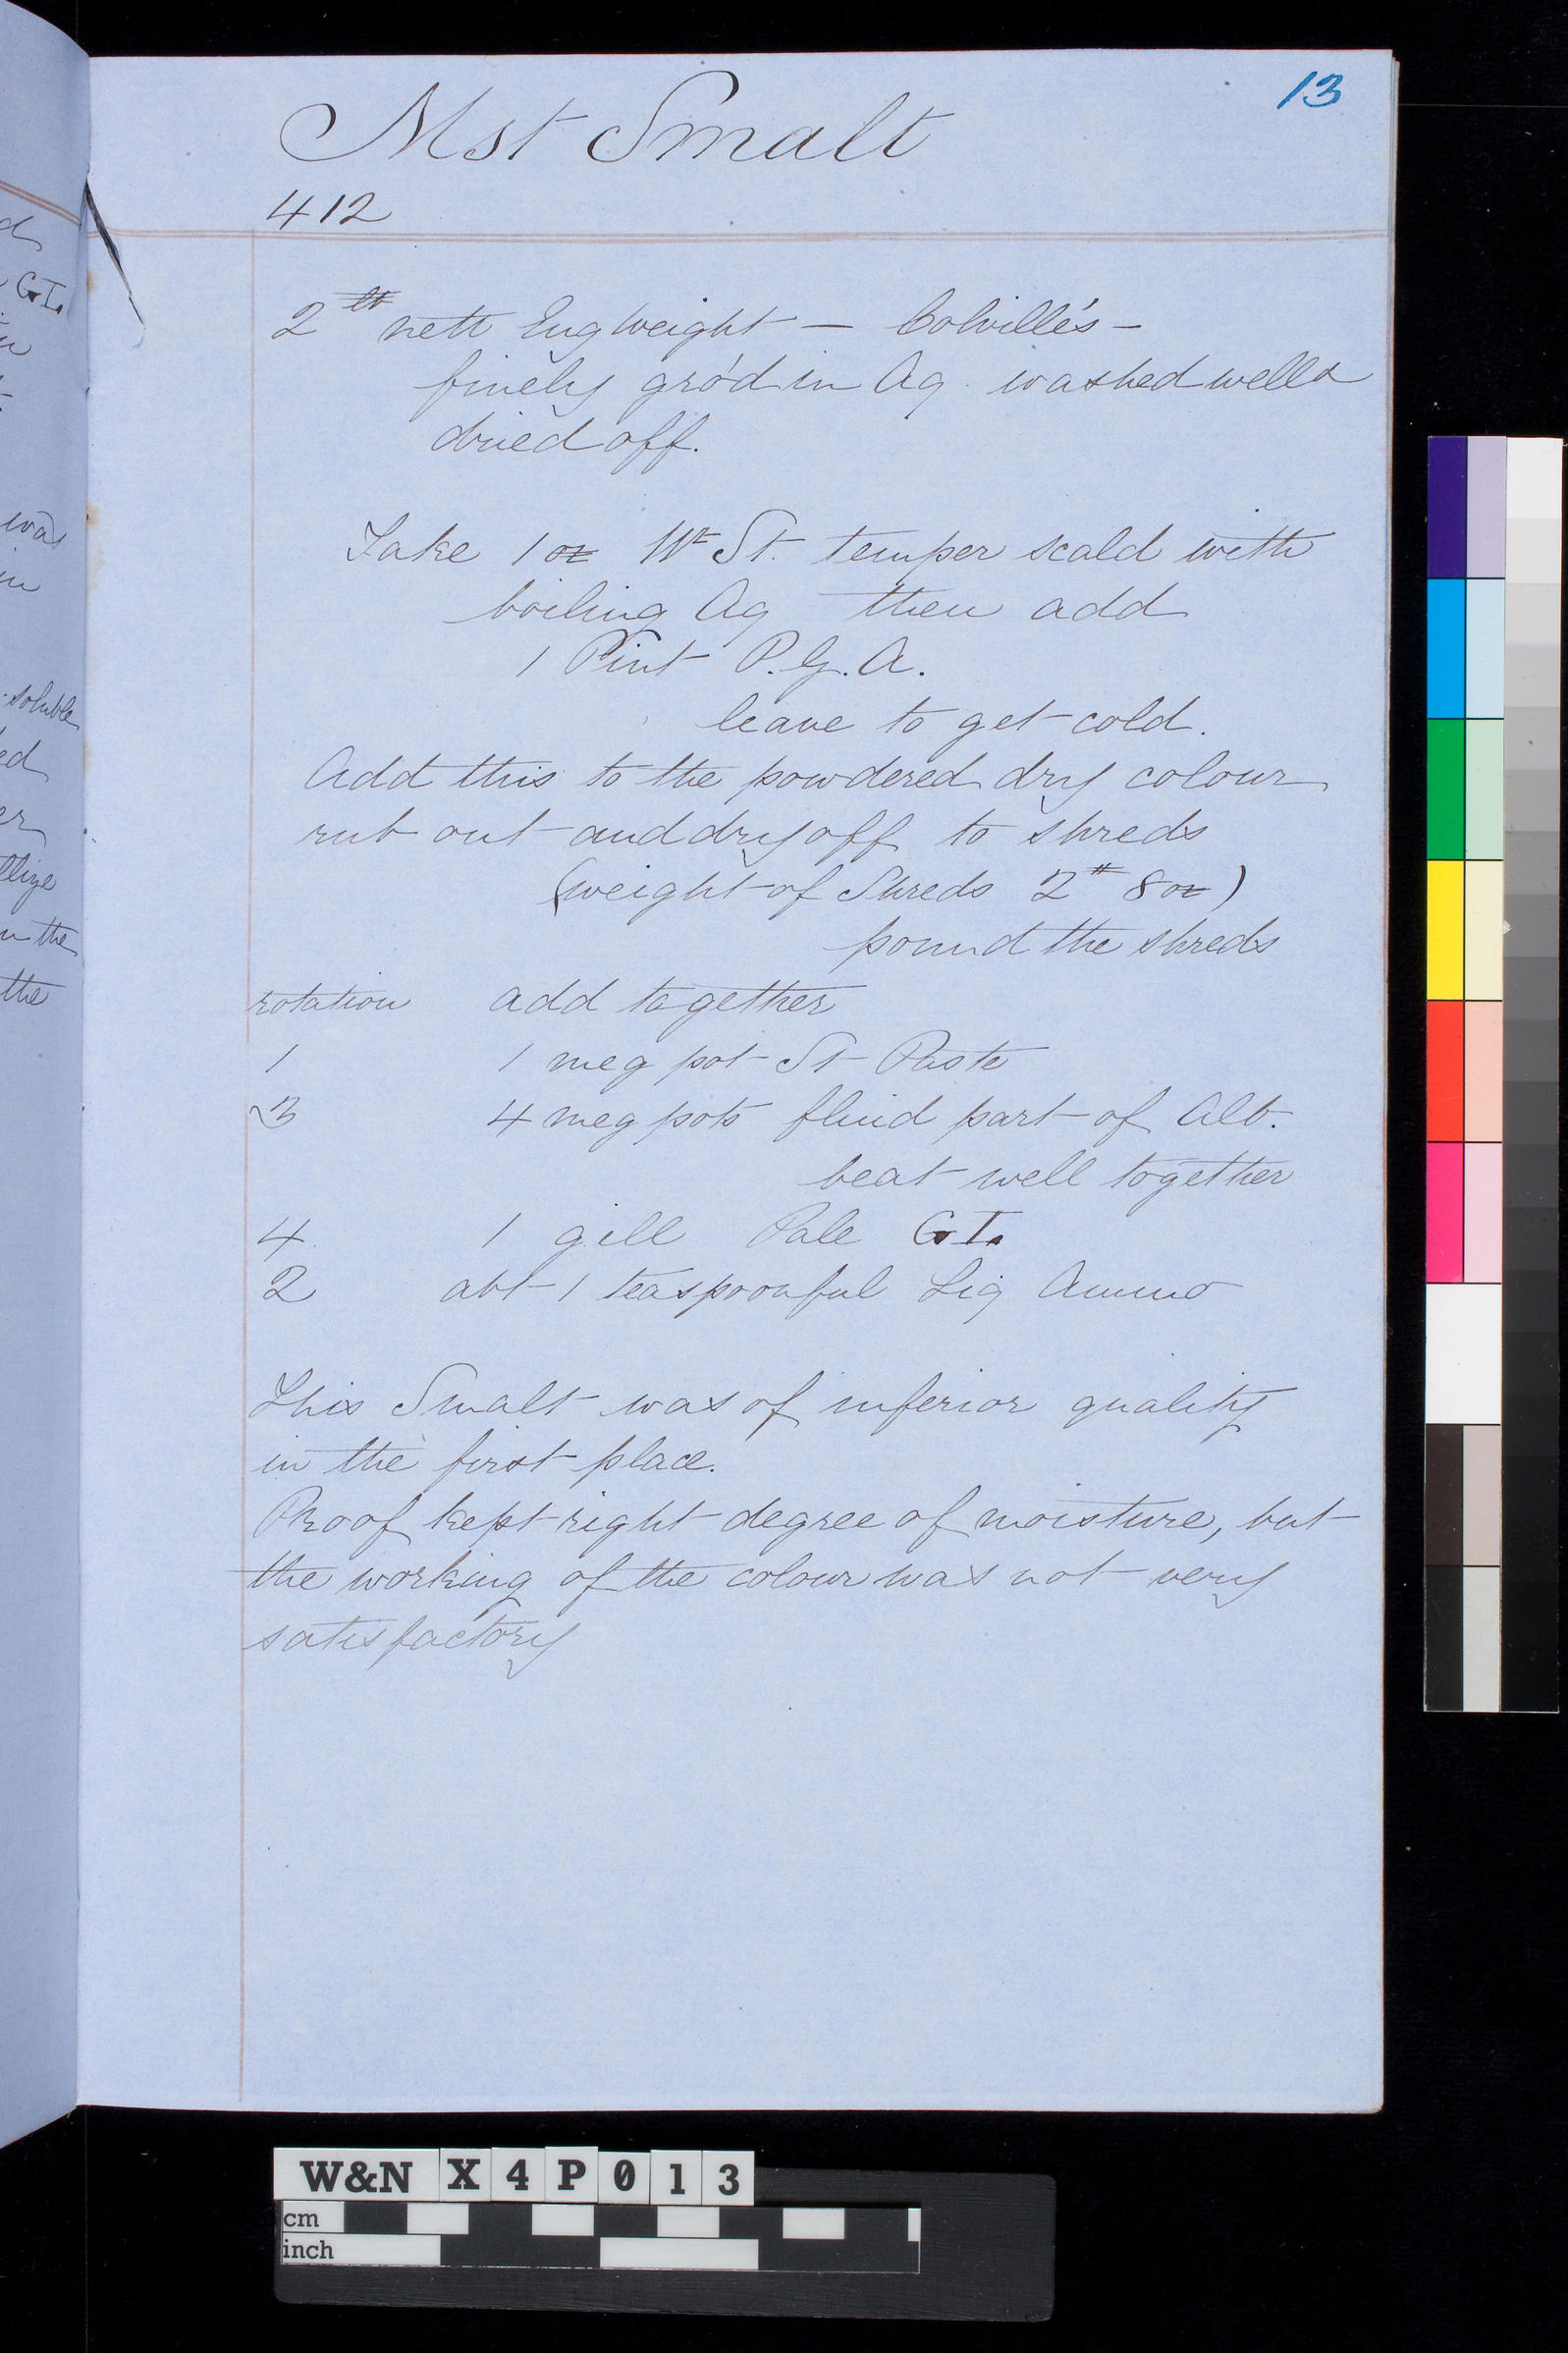 13
Mst Smalt
412
2 lb nett Eng Weight — Colville's —
finely gro'd in Aq. washed well &
dried off.
Take 1 oz Wt St. temper scald with
boiling Aq then add
1 Pint P.G.A.
leave to get cold.
Add this to the powdered dry colour
rub out and dry off to shreds
(weight of Shreds 2 # 8 oz)
pound the shreds
rotation add together
1 1 meg pot St Paste
3 4 meg pots fluid part of Alb.
beat well together
4 1 gill Pale G.I.
2 abt 1 teaspoonful Liq Ammo
This Smalt was of inferior quality
in the first place.
Proof kept right degree of moisture, but
the working of the colour was not very
satisfactory
G.I.
was
in
soluble
ed
er
n the
the
W&N X4P013
cm
inch